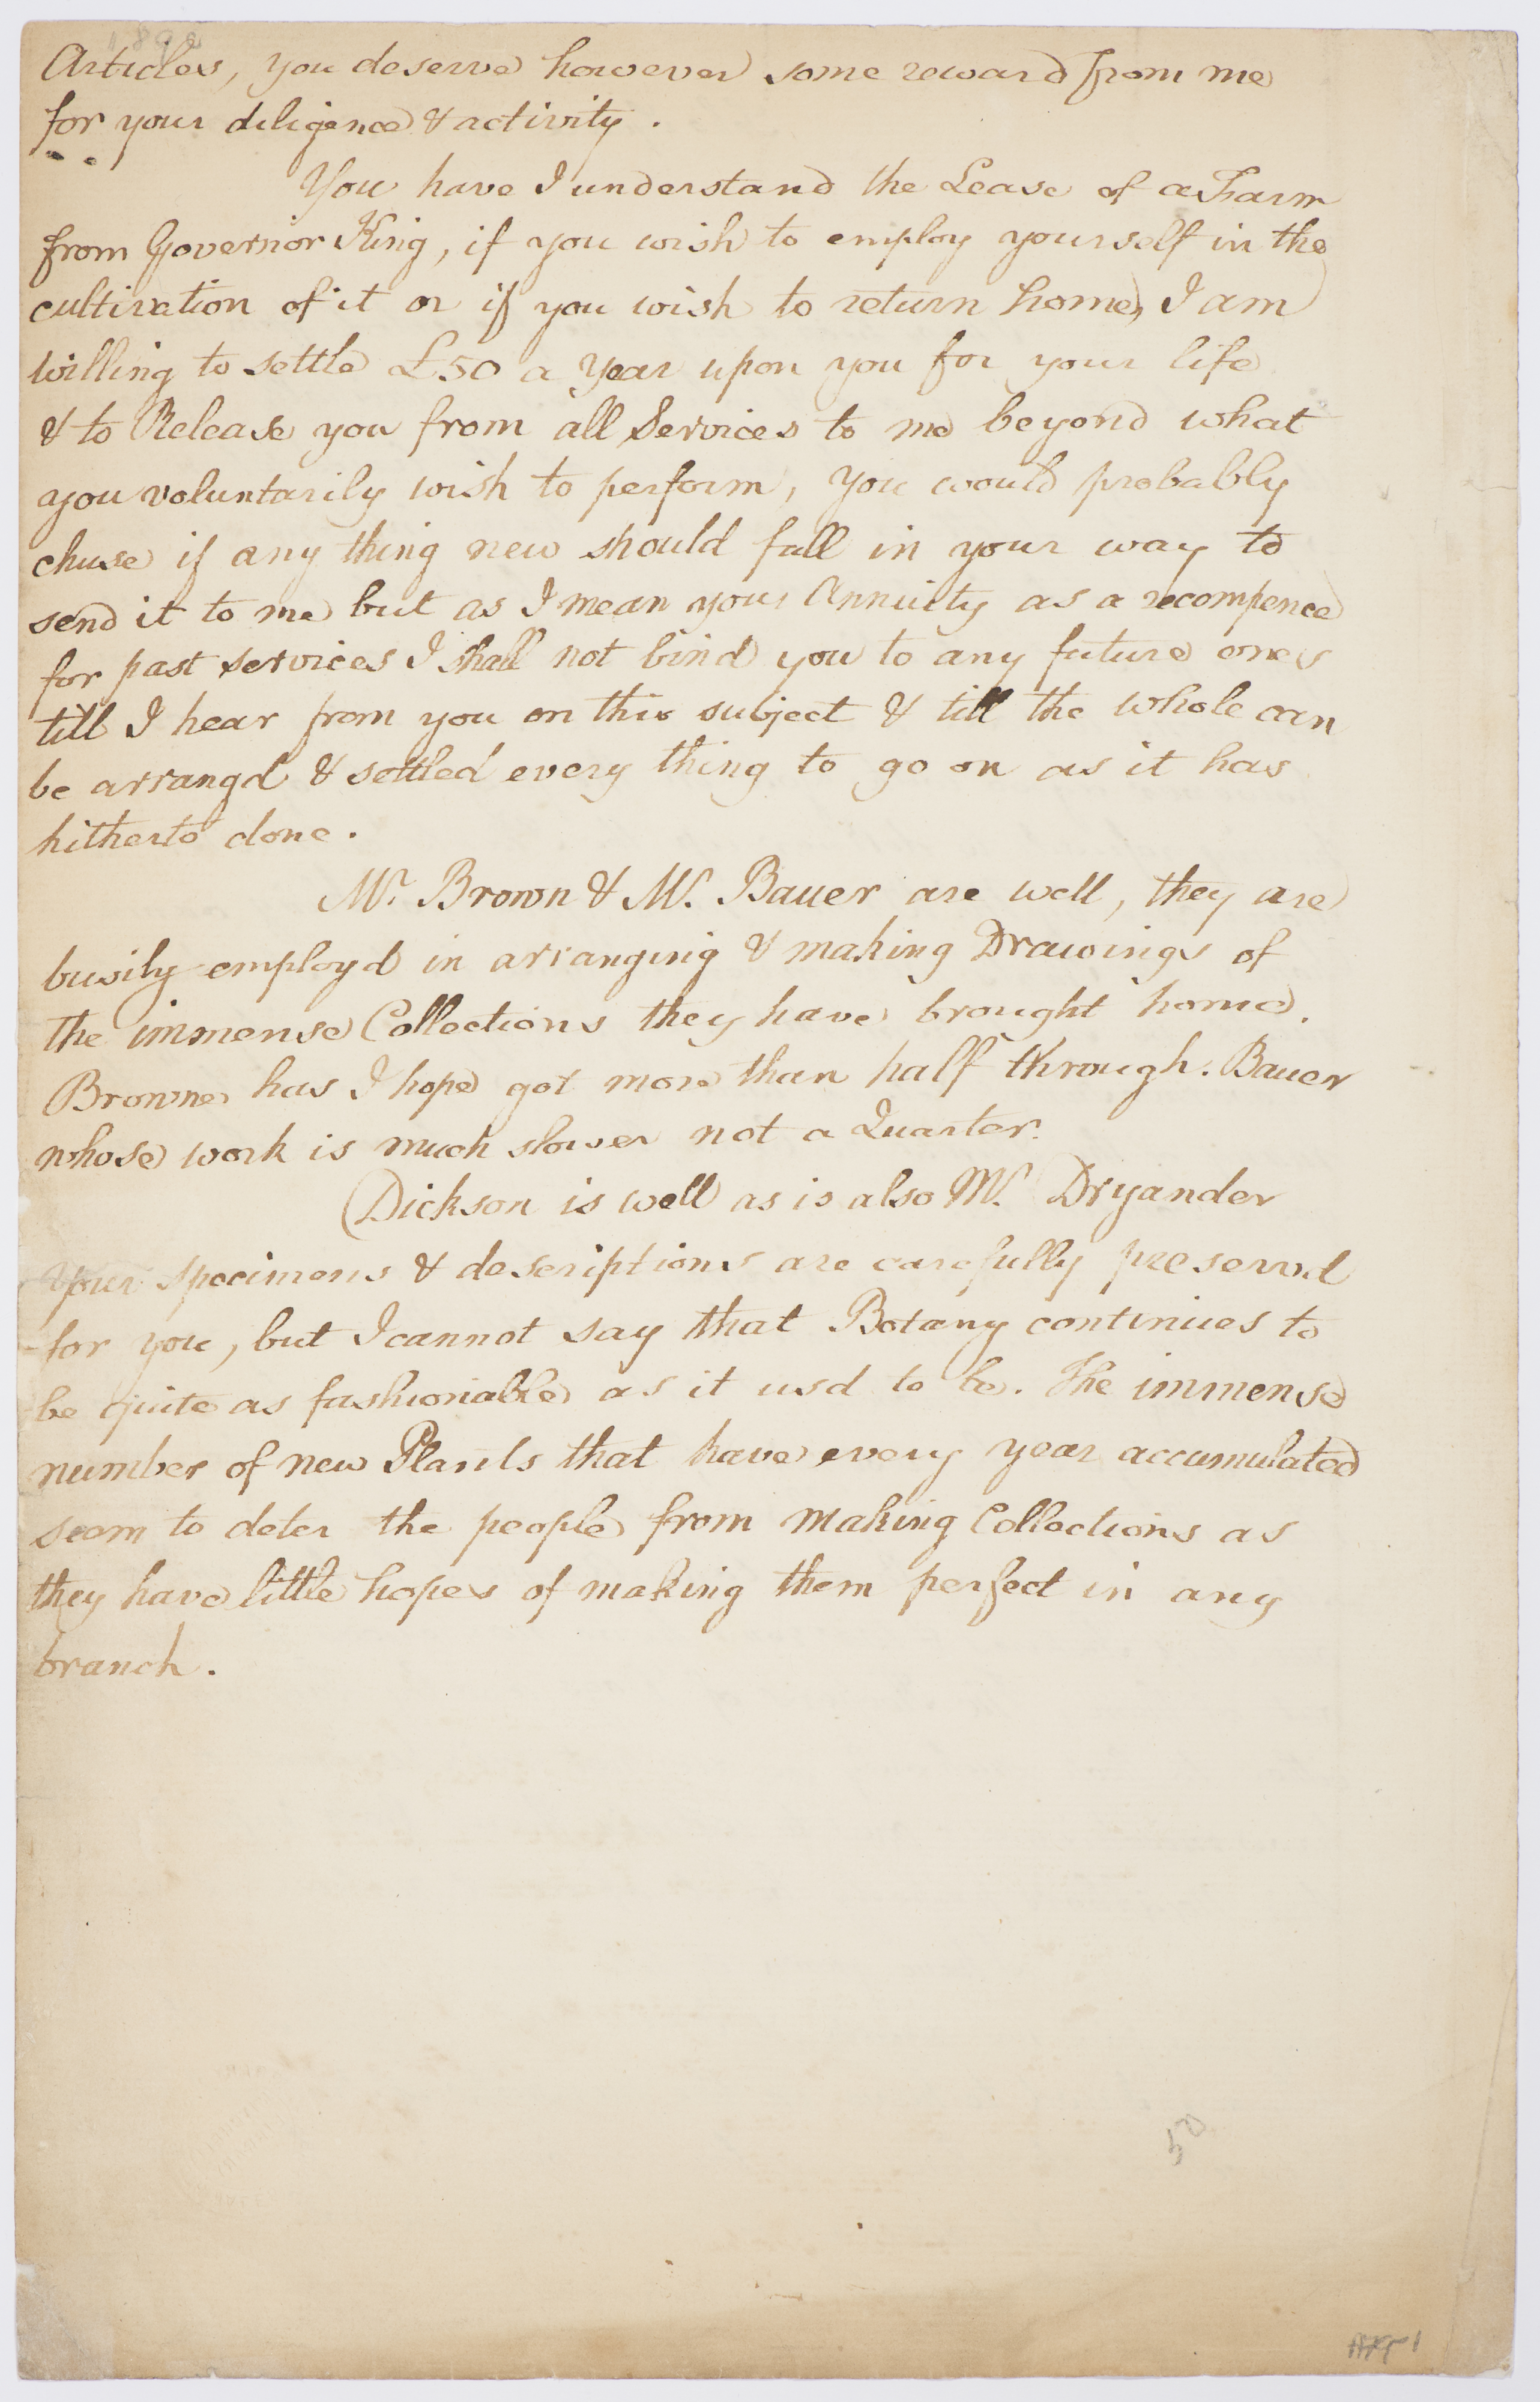 Articles, you deserve however some reward from me
for your diligence & activity.
You have I understand the Lease of a Farm
from Governor King, if you wish to employ yourself in the
cultivation of it or if you wish to return home, I am
willing to settle £50 a Year upon you for your life
& to Release you from all Services to me beyond what
you voluntarily wish to perform, you would probably
chuse if any thing new should fall in your way to
send it to me but as I mean your Annuity as a recompence
for past services I shall not bind you to any future ones
till I hear from you on this subject & till the whole can
be arrangd & settled every thing to go on as it has
hitherto done.
Mr. Brown & Mr. Bauer are well, they are
busily employd in arranging & making Drawings of
the immense Collections they have brought home.
Browne has I hope got more than half through. Bauer
whose work is much slower not a Quarter.
Dickson is well as is also Mr. Dryander
Your specimens & descriptions are carefully preservd
for you, but I cannot say that Botany continues to
be quite as fashionable as it usd to be. The immense
number of new Plants that have every year accumulated
seem to deter the people from making Collections as
they have little hopes of making them perfect in any
branch.
50